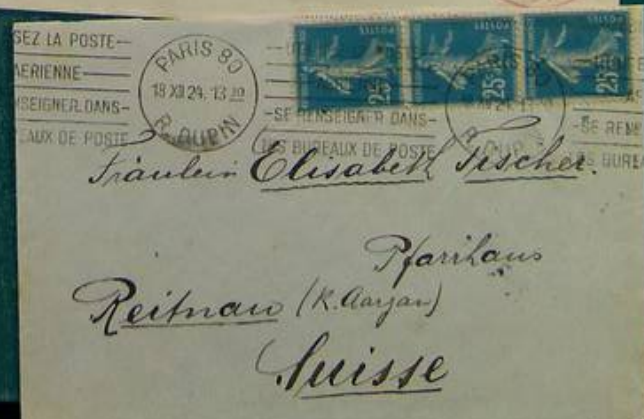 SEZ LA POSTE-
AERIENNE-
NSEIGNER.DANS-
EAUX DE POSTE
PARIS 80
18 XII 24. 13 20
R. DUPIN
-SE RENSEIGNER DANS-
LES BUREAUX DE POSTE
POSTES
25c
POSTES
25
POSTES
25
PARIS 80
R. DUP
-SE RENS
S BURE
Fräulein Elisabeth Fischer.
Pfarrhaus
Reitnau (K. Aargau)
Suisse